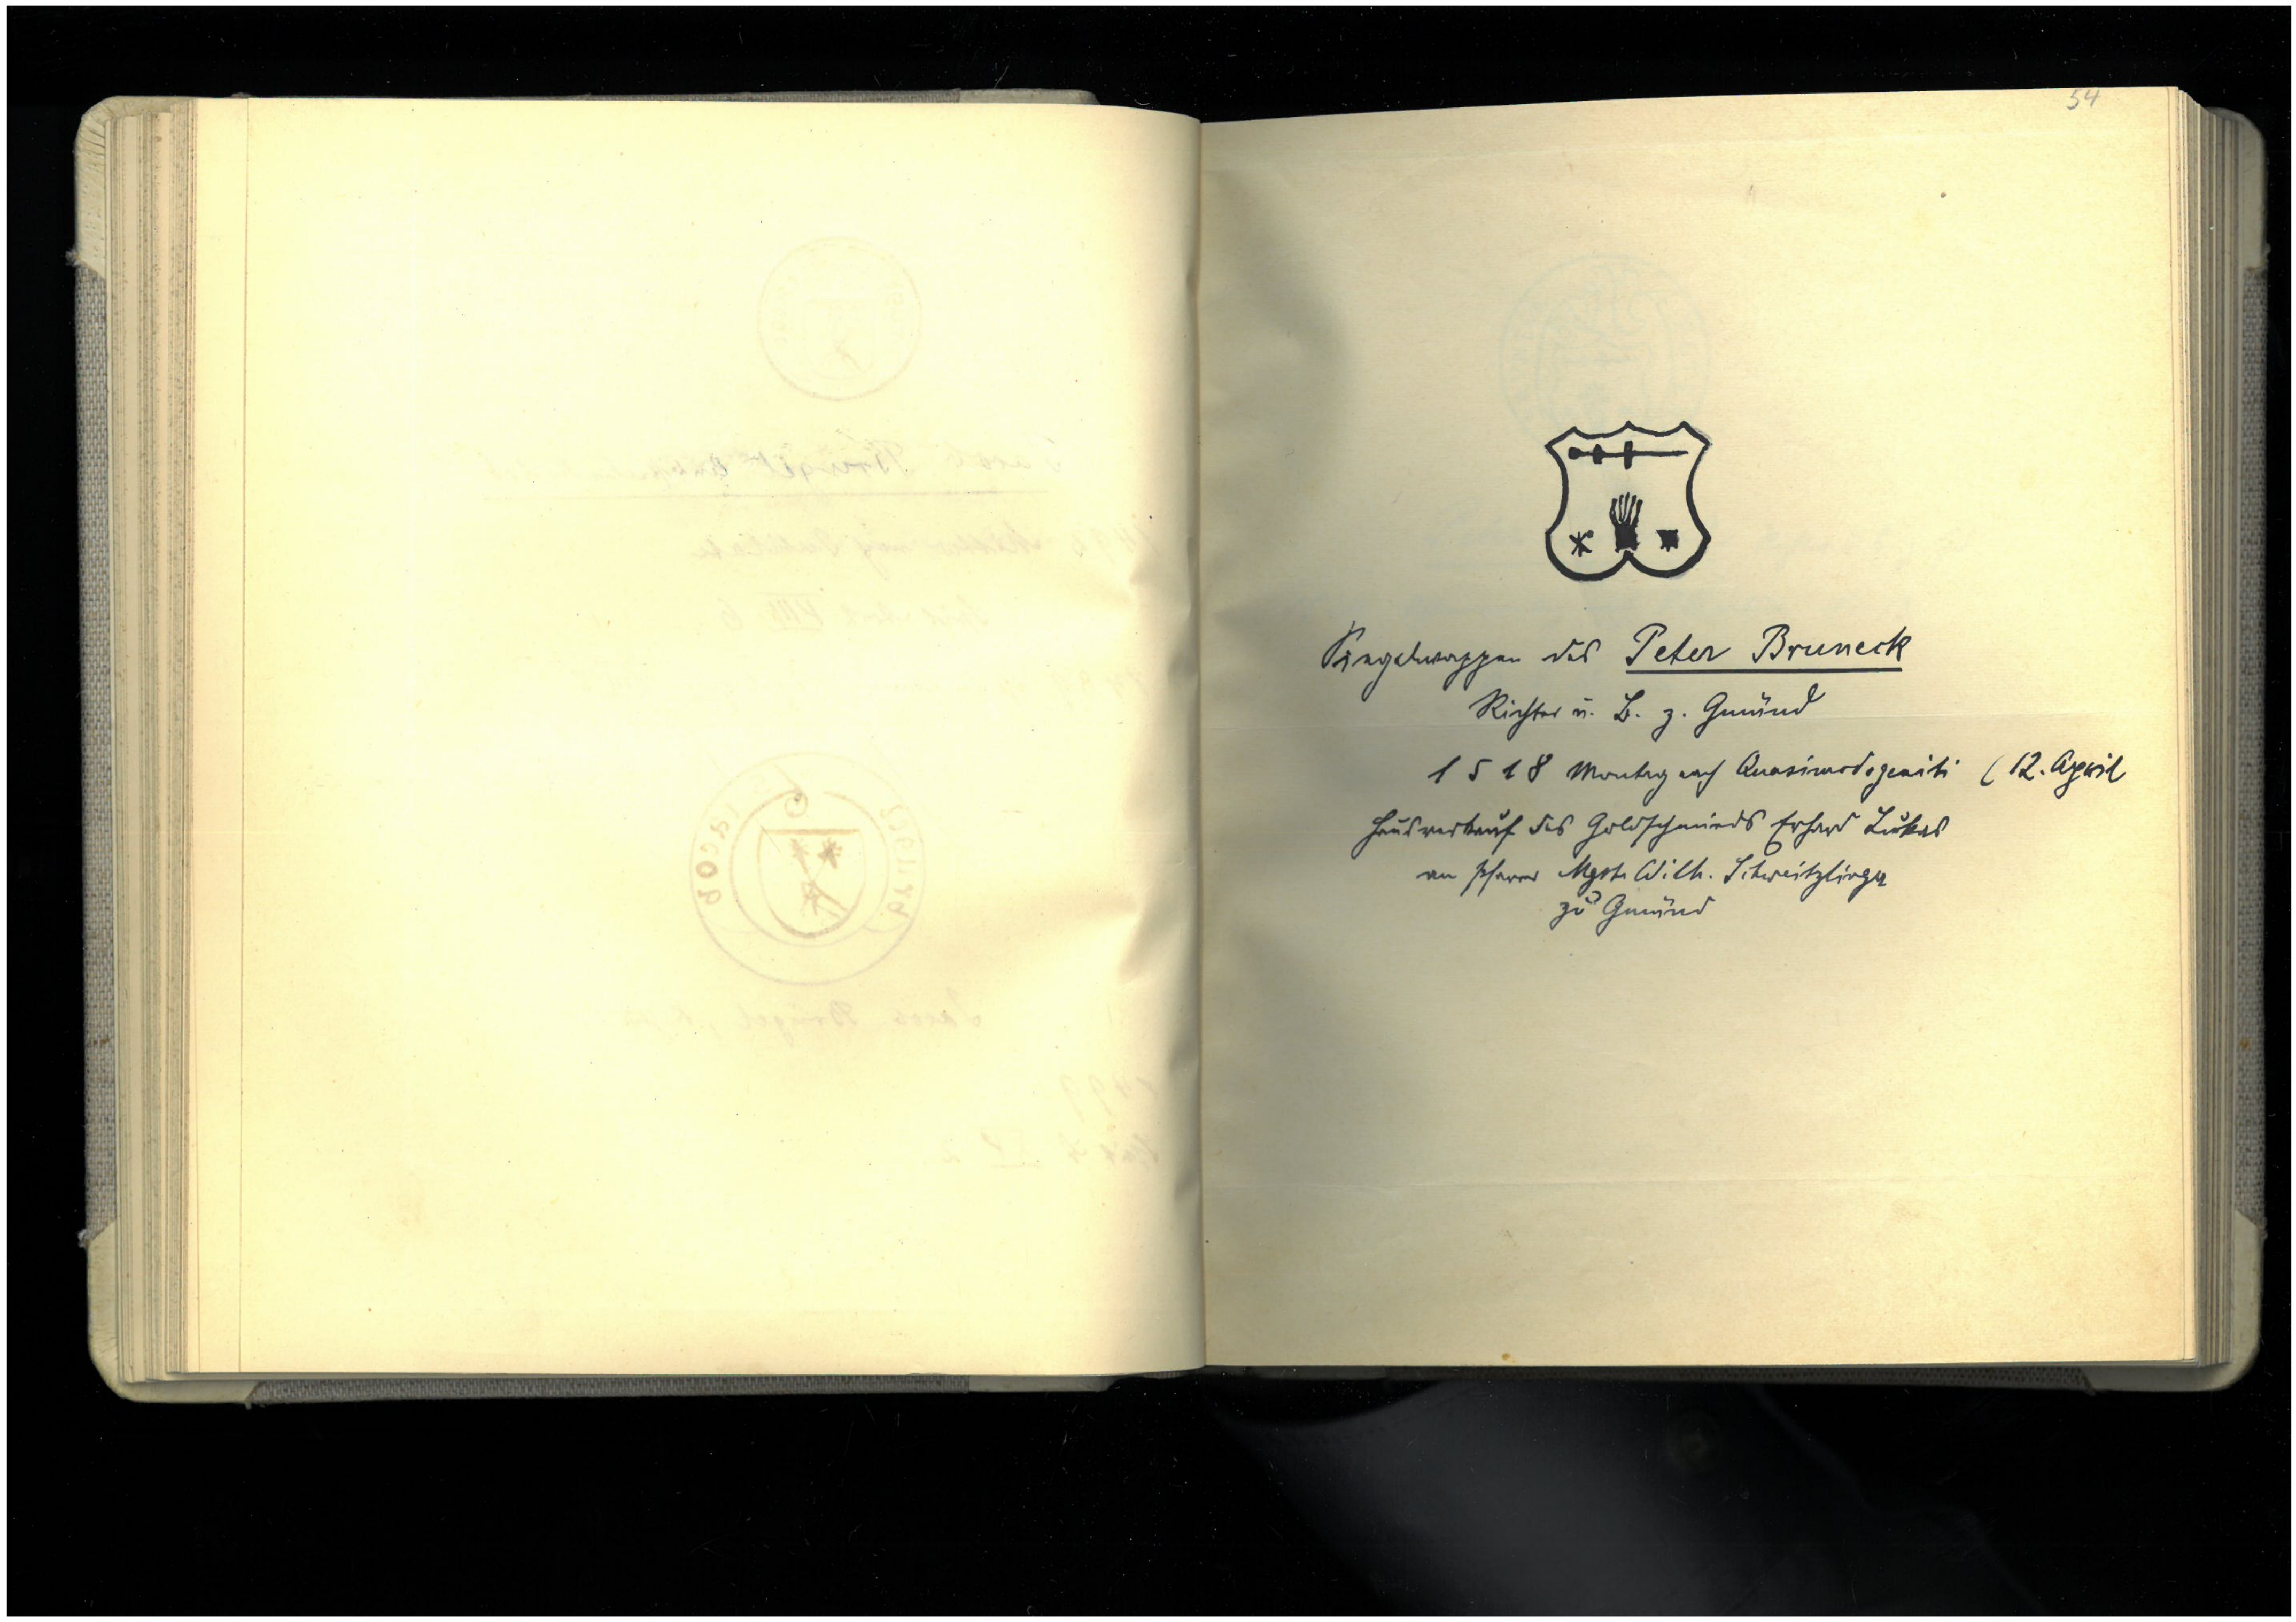 54
Siegelwappen des Peter Bruneck
Richter u. B. z. Gmünd
1518 Montag nach Quasimodogeniti (12. April
Hausverkauf des Goldschmieds Erhard Lukas
an Pfarrer Mgstr Wilh. Schweitzlinger
zu Gmünd